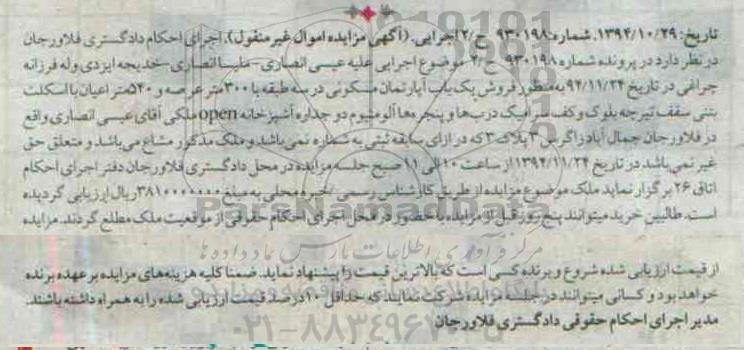 تاریخ: ۱۳۹۴/۱۰/۲۹. شماره: ۹۳۰۱۹۸ ح/۲ اجرایی. (آگهی مزایده اموال غیر منقول). اجرای احکام دادگستری فلاورجان
در نظر دارد در پرونده شماره ۹۳۰۱۹۸ ح/۲ موضوع اجرایی علیه عیسی انصاری-ملیسا انصاری-خدیجه ایزدی وله فرزانه
چراغی در تاریخ ۹۴/۱۱/۲۴ به منظور فروش یک باب آپارتمان مسکونی در سه طبقه با ۳۰۰ متر عرصه و ۵۴۰ متر اعیان با اسکلت
بتنی سقف تیرچه بلوک و کف سرامیک درب‌ها و پنجره‌ها آلومنیوم دو جداره آشپزخانه open ملکی آقای عیسی انصاری واقع
در فلاورجان جمال آباد زاگرس ۳ پلاک ۳ که در ازای سابقه ثبتی به شماره نمی‌باشد و ملک مذکور مشاع می‌باشد و متعلق حق
غیر نمی‌باشد در تاریخ ۱۳۹۴/۱۱/۲۴ از ساعت ۱۰ الی ۱۱ صبح جلسه مزایده در محل دادگستری فلاورجان دفتر اجرای احکام
اتاق ۲۶ برگزار نماید ملک موضوع مزایده از طریق کارشناس رسمی /خبره محلی به مبلغ ۳۸۱۰۰۰۰۰۰۰ ریال ارزیابی گردیده
است. طالبین خرید میتوانند پنج روز قبل از مزایده با حضور در محل اجرای احکام حقوقی از موقعیت ملک مطلع گردند. مزایده
ParsNamadData
مرکز فرآوری اطلاعات پارس نماد داده ها
از قیمت ارزیابی شده شروع و برنده کسی است که بالاترین قیمت را پیشنهاد نماید. ضمنا کلیه هزینه‌های مزایده بر عهده برنده
خواهد بود و کسانی میتوانند در جلسه مزایده شرکت نمایند که حداقل ۱۰ درصد قیمت ارزیابی شده را به همراه داشته باشند.
مدیر اجرای احکام حقوقی دادگستری فلاورجان